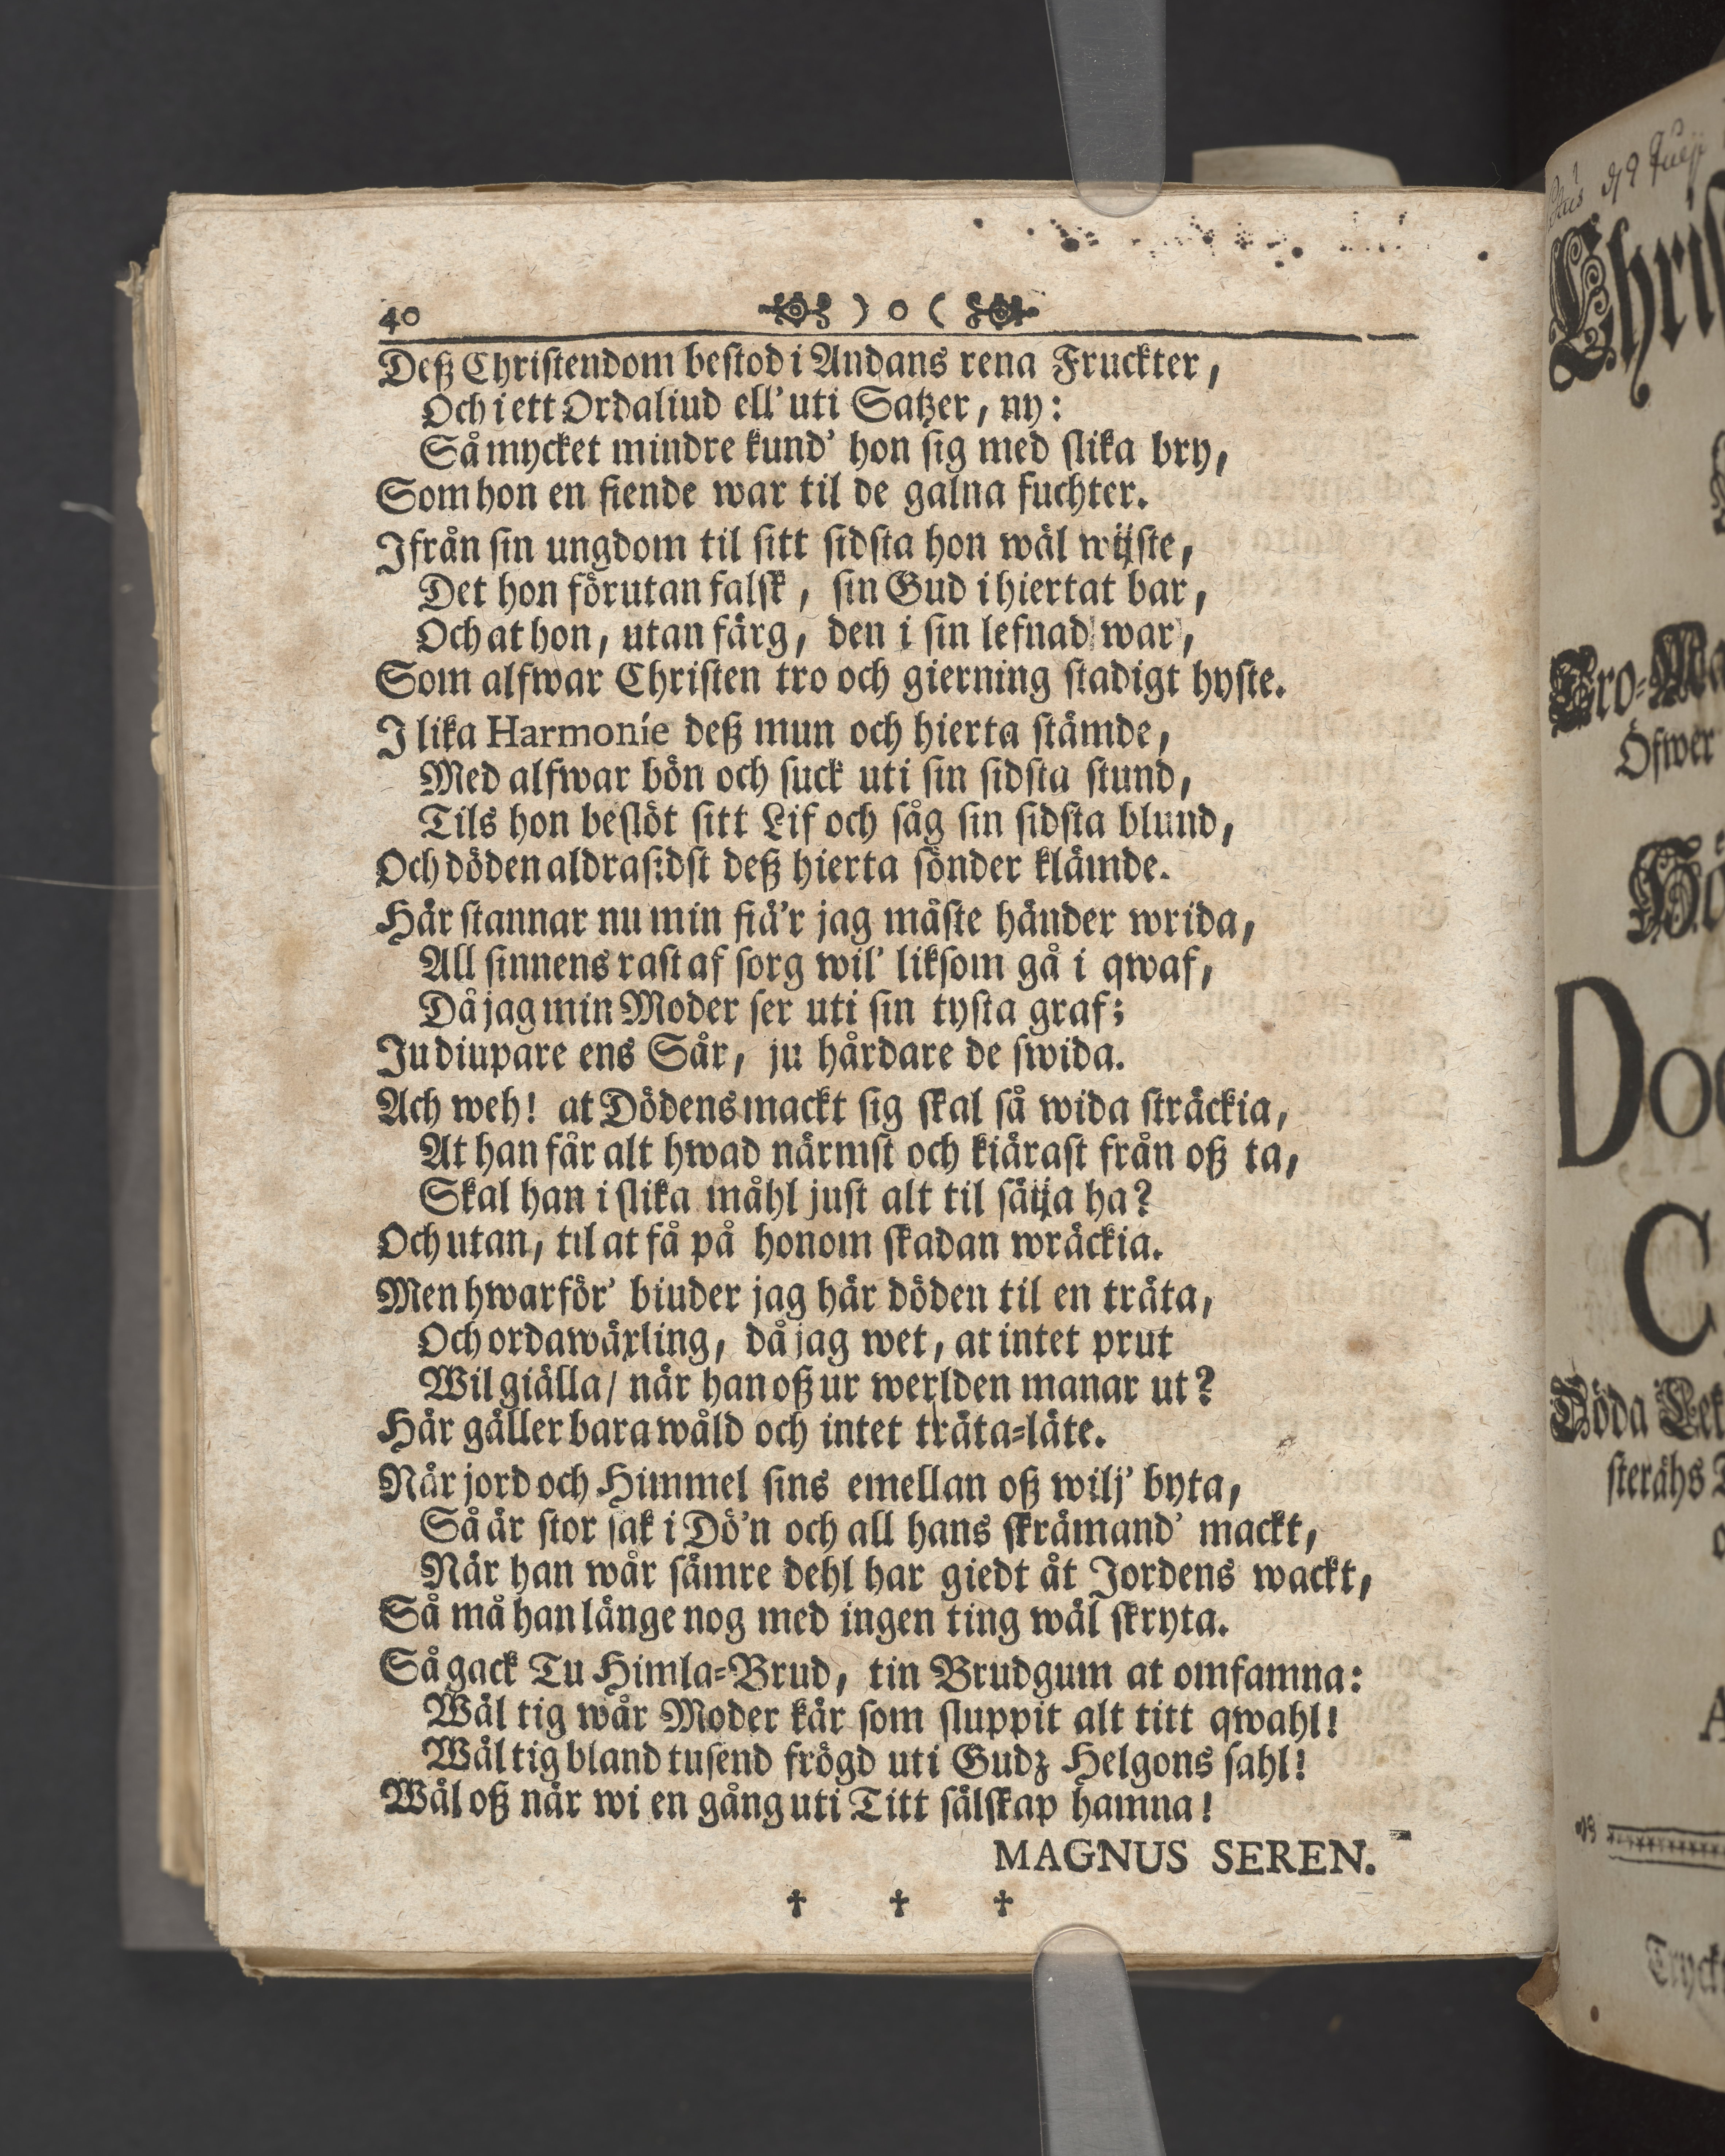 40 ) o (
Deß Christendom bestod i Andans rena Fruckter,
Och i ett Ordaliud ell' uti Satzer, ny:
Så mycket mindre kund' hon sig med slika bry,
Som hon en fiende war til de galna fuchter.
Ifrån sin ungdom til sitt sidsta hon wäl wijste,
Det hon förutan falsk, sin Gud i hiertat bar,
Och at hon, utan färg, den i sin lefnad war,
Som alfwar Christen tro och gierning stadigt hyste.
I lika Harmonie deß mun och hierta stämde,
Med alfwar bön och suck uti sin sidsta stund,
Tils hon beslöt sitt Lif och såg sin sidsta blund,
Och döden aldrasidst deß hierta sönder klämde.
Här stannar nu min fiä'r jag måste händer wrida,
All sinnens rast af sorg wil' liksom gå i qwaf,
Då jag min Moder ser uti sin tysta graf;
Ju diupare ens Sår, ju hårdare de swida.
Ach weh! at Dödens mackt sig skal så wida sträckia,
At han får alt hwad närmst och kiärast från oß ta,
Skal han i slika måhl just alt til sätja ha?
Och utan, til at få på honom skadan wräckia.
Men hwarför' biuder jag här döden til en träta,
Och ordawäxling, då jag wet, at intet prut
Wil giälla/ när han oß ur werlden manar ut?
Här gäller bara wåld och intet träta-läte.
När jord och Himmel sins emellan oß wilj' byta,
Så är stor sak i Dö'n och all hans skrämand' mackt,
När han wår sämre dehl har giedt åt Jordens wackt,
Så må han länge nog med ingen ting wäl skryta.
Så gack Tu Himla-Brud, tin Brudgum at omfamna:
Wäl tig wår Moder kär som sluppit alt titt qwahl!
Wäl tig bland tusend frögd uti Gudz Helgons sahl!
Wäl oß när wi en gång uti Titt sälskap hamna!
MAGNUS SEREN.
† † †
Öfwer
Döda
Tryckt